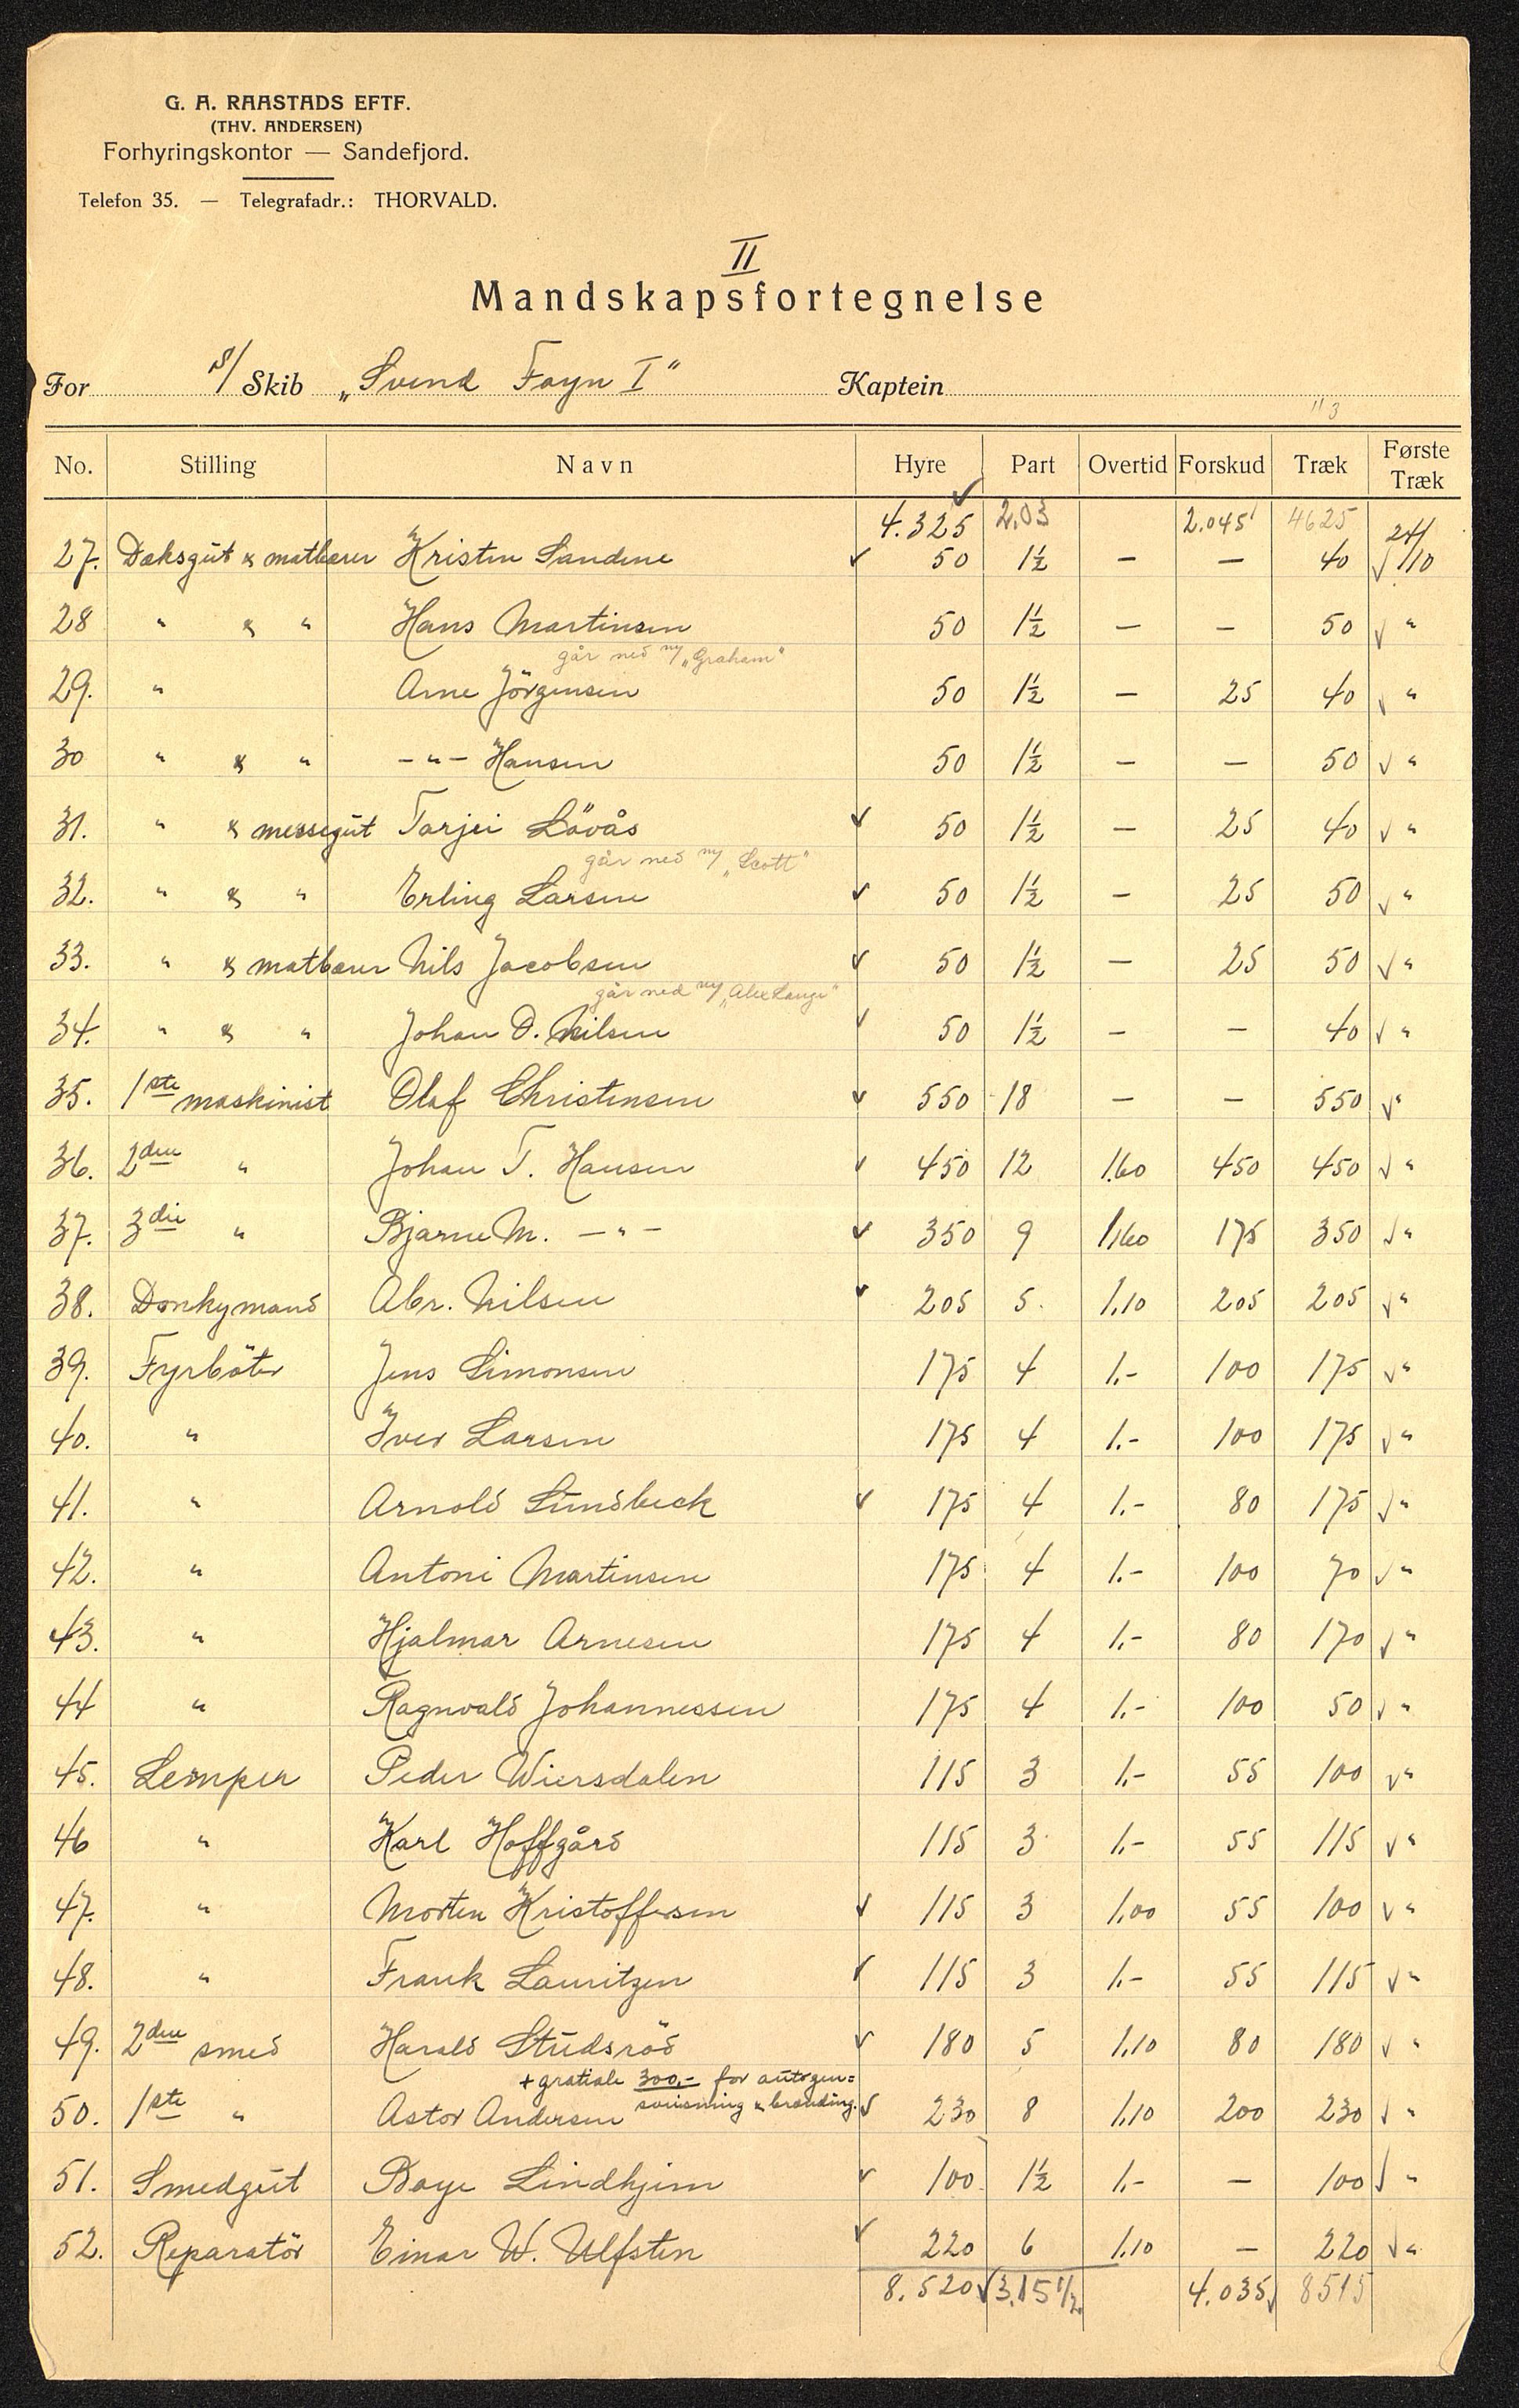 G. A. RAASTADS EFTF.
(THV. ANDERSEN)
Forhyringskontor — Sandefjord.
Telefon 35. — Telegrafadr.: THORVALD.
II
Mandskapsfortegnelse
For S/ Skib „Svend Foyn I" Kaptein
No. Stilling Navn Hyre Part Overtid Forskud Træk Første Træk
4.325 2.03 2.045 4625
27. Dæksgut & matbærer Kristen Sandene 50 1½ — — 40 24/10
28 " & " Hans Martinsen 50 1½ — — 50 "
går ned m/ „Graham"
29. " Arne Jörgensen 50 1½ — 25 40 "
30 " & " —"— Hansen 50 1½ — — 50 "
31. " & messegut Tarjei Lövås 50 1½ — 25 40 "
går ned m/ „Scott"
32. " & " Erling Larsen 50 1½ — 25 50 "
33. " & matbærer Nils Jacobsen 50 1½ — 25 50 "
går ned m/ „Alex Lange"
34. " & " Johan O. Nilsen 50 1½ — — 40 "
35. 1ste maskinist Olaf Christensen 550 18 — — 550 "
36. 2den " Johan T. Hansen 450 12 1.60 450 450 "
37. 3die " Bjarne M. —"— 350 9 1,60 175 350 "
38. Donkymand Abr. Nilsen 205 5 1,10 205 205 "
39. Fyrböter Jens Simonsen 175 4 1.- 100 175 "
40. " Iver Larsen 175 4 1.- 100 175 "
41. " Arnold Lundbeck 175 4 1.- 80 175 "
42. " Antoni Martinsen 175 4 1.- 100 70 "
43. " Hjalmar Arnesen 175 4 1.- 80 170 "
44 " Ragnvald Johannessen 175 4 1.- 100 50 "
45. Lemper Peder Wiersdalen 115 3 1.- 55 100 "
46 " Karl Hoffgård 115 3 1.- 55 115 "
47. " Morten Kristoffersen 115 3 1,00 55 100 "
48. " Frank Lauritzen 115 3 1.- 55 115 "
49. 2den smed Harald Studsröd 180 5 1,10 80 180 "
+ gratiale 300,- for autogen=
sveisning & brænding.
50. 1ste " Astor Andersen 230 8 1,10 200 230 "
51. Smedgut Boye Lindhjem 100 1½ 1.- — 100 "
52. Reparatör Einar W. Ulfsten 220 6 1,10 — 220 "
8.520 3.15 1/2 4.035 8515